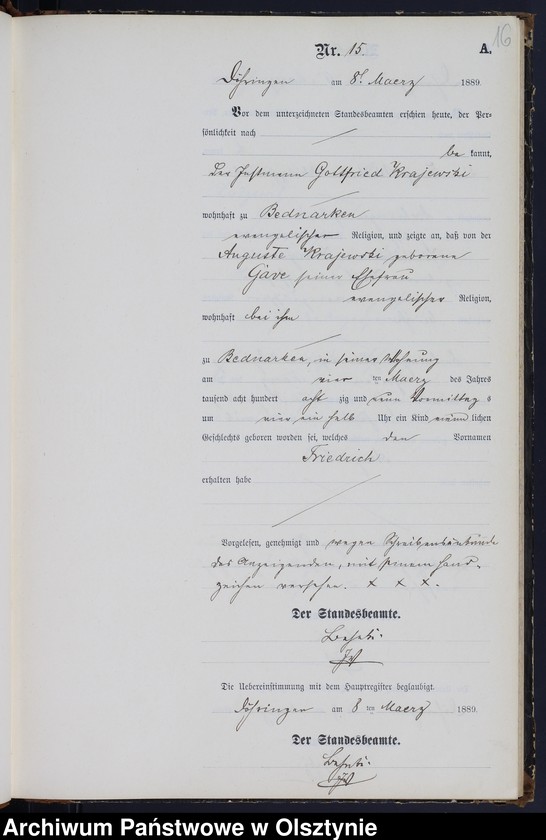 16
Nr. 15. A.
Döhringen am 8t Maerz 1889.
Vor dem unterzeichneten Standesbeamten erschien heute, der Per=
sönlichkeit nach
be kannt,
der Instmann Gottfried Krajewski
wohnhaft zu Bednarken
evangelischer Religion, und zeigte an, daß von der
Auguste Krajewski geborene
Gave seiner Ehefrau
evangelischer Religion,
wohnhaft bei ihm
zu Bednarken, in seiner Wohnung
am vier ten Maerz des Jahres
tausend acht hundert acht zig und neun Vormittag s
um vier ein halb Uhr ein Kind männ lichen
Geschlechts geboren worden sei, welches den Vornamen
Friedrich
erhalten habe
Vorgelesen, genehmigt und wegen Schreibensunkunde
des Anzeigenden, mit seinem Hand-
zeichen versehen. x x x.
Der Standesbeamte.
Die Uebereinstimmung mit dem Hauptregister beglaubigt.
Döhringen am 8 ten Maerz 1889.
Der Standesbeamte.
Archiwum Państwowe w Olsztynie